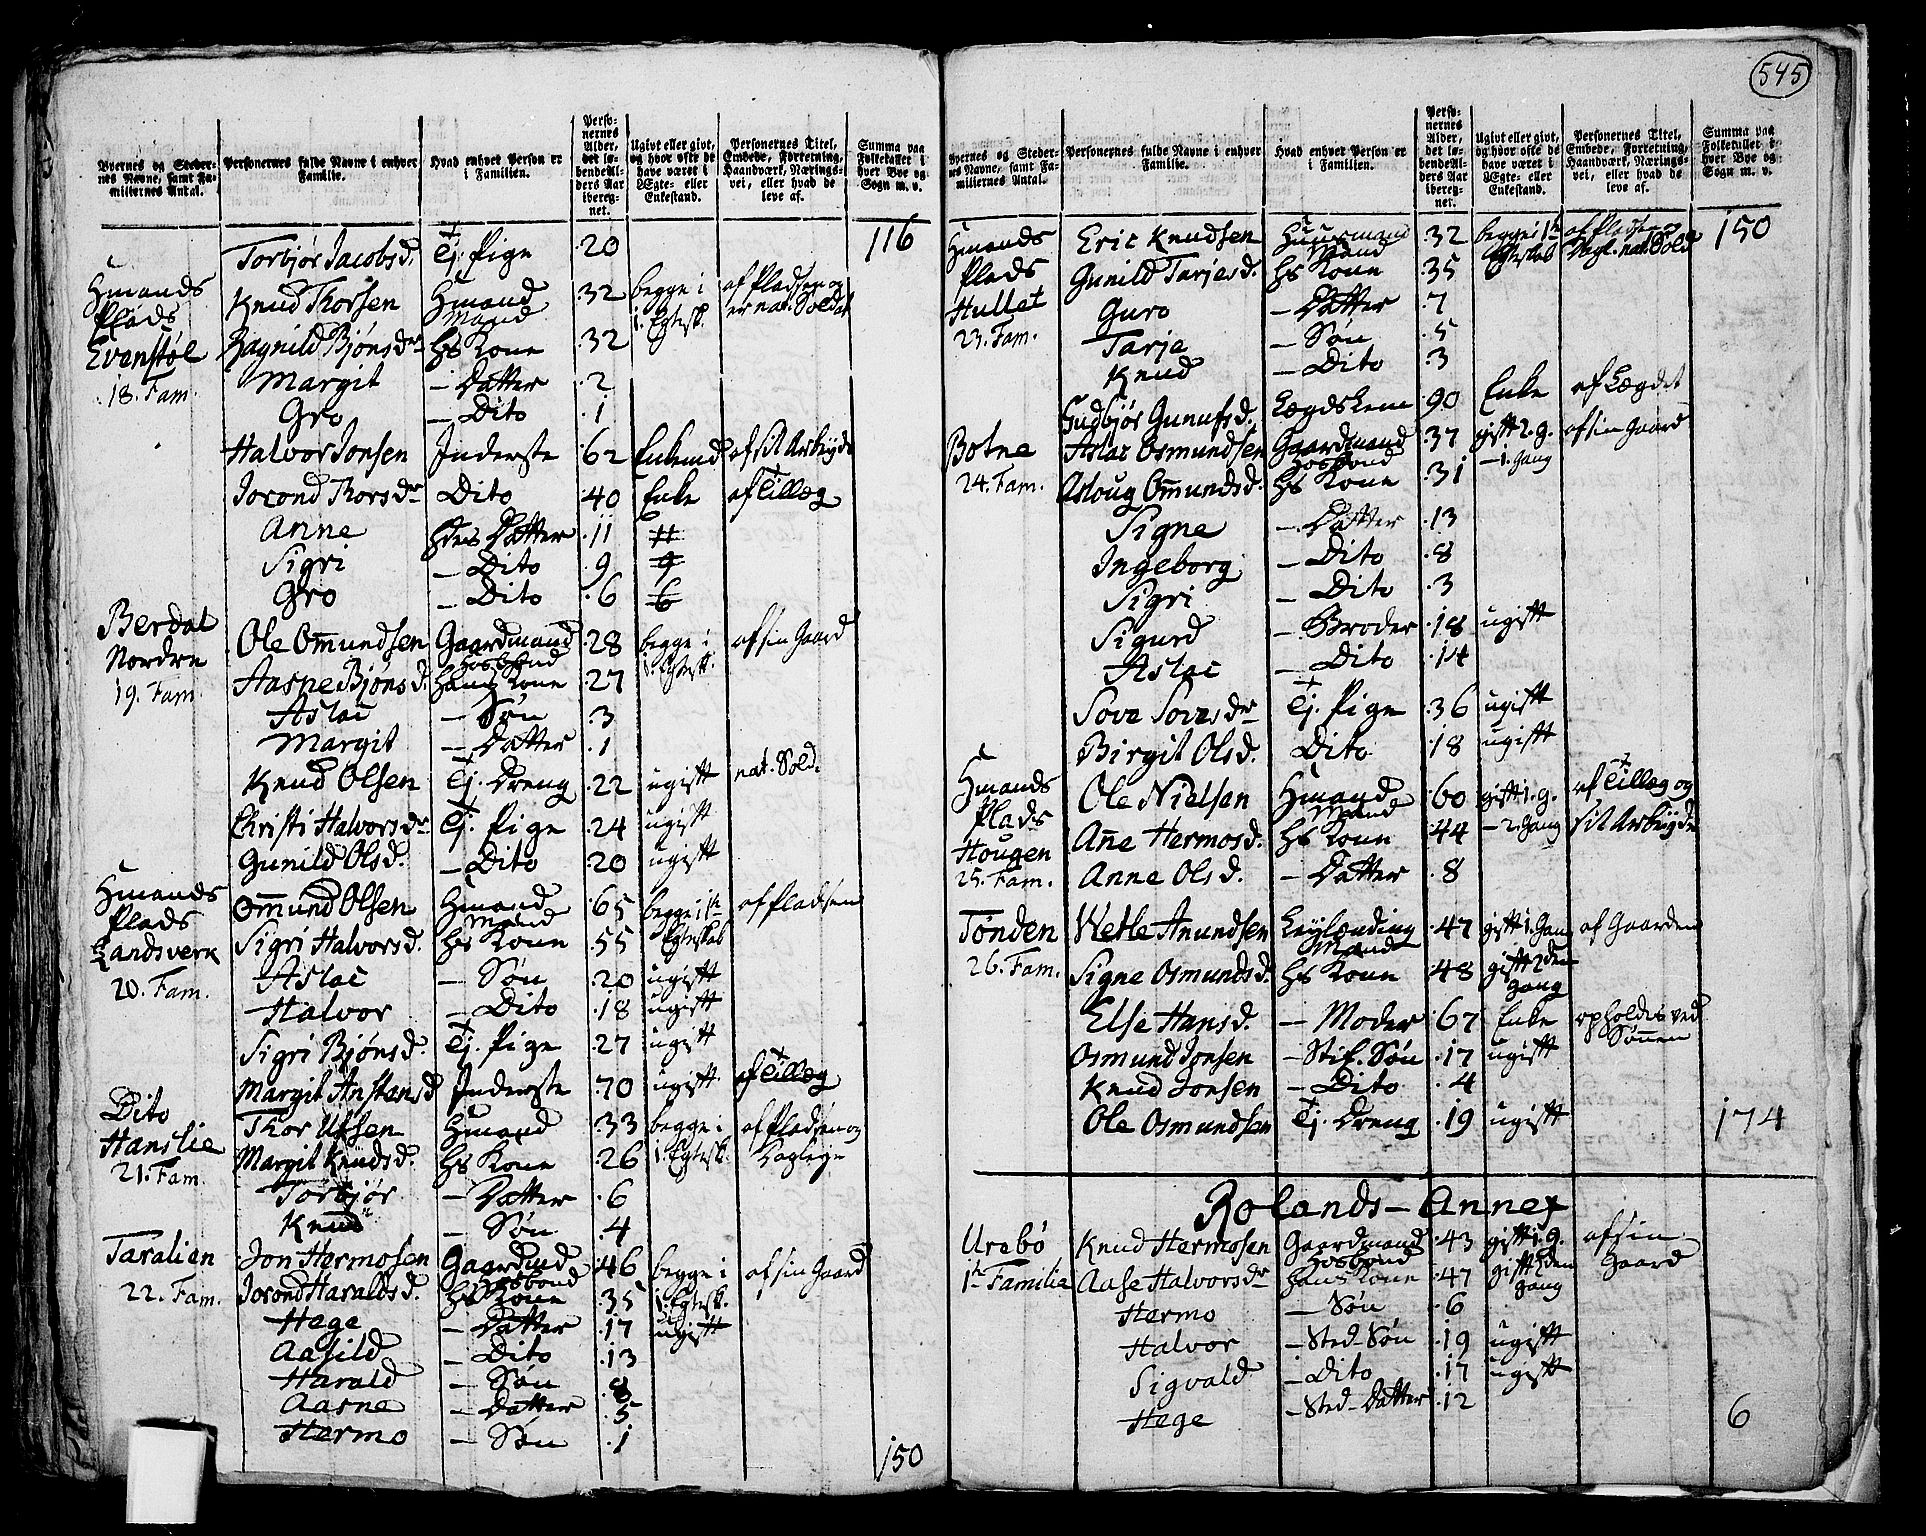 545
Byernes og Stedernes Navne, samt Familiernes Antal. Personernes fulde Navne i enhver Familie. Hvad enhver Person er i Familien. Personernes Alder, det løbende Alders Aar iberegnet. Ugivt eller givt, og hvor ofte de have været i Ægte- eller Enkestand. Personernes Titel, Embede, Forretning, Haandværk, Næringsvei, eller hvad de leve af. Summa paa Folketallet i hver Bye og Sogn m. v.
Torbjør Jacobsd. Tj. Pige 20 116
Hmands Plads Evenstøl 18. Fam.
Knud Thorsen Hmand Mand 32 begge i 1. Egtesk. af Pladsen og er nat. Soldat
Ragnild Bjønsdr Hs Kone 32
Margit – Datter 2
Gro – Dito 1
Halvor Jonsen Inderste 62 Enkemd af sit Arbeyde
Jorond Thorsdr Dito 40 Enke af Tillæg
Anne Hdes Datter 11
Sigri – Dito 9
Gro – Dito 6
Berdal Nordre 19. Fam.
Ole Omundsen Gaardmand Hosbond 28 begge i 1. Egtesk. af sin Gaard
Aasne Bjønsd. Hans Kone 27
Aslac – Søn 3
Margit – Datter 1
Knud Olsen Tj. Dreng 22 ugift nat. Sold.
Christi Halvorsdr Tj. Pige 24 ugift
Gunild Olsd. – Dito 20 ugift
Hmands Plads Landsverk 20. Fam.
Omund Olsen Hmand Mand 65 begge i 1te Egteskab af Pladsen
Sigri Halvorsd. Hs Kone 55
Aslac – Søn 20 ugift
Halvor – Dito 18 ugift
Sigri Bjønsd. Tj. Pige 27 ugift
Margit Anstensd Inderste 70 ugift af Tillæg
Dito Hanslie 21. Fam.
Thor Ufsen Hmand 33 begge i 1. Egtesk. af Pladsen og Dagleye
Margit Knudsd. Hs Kone 26
Torbjør – Datter 6
Knud – Søn 4
Taralien 22. Fam.
Jon Hermosen Gaardmd Hosbond 46 begge i 1. Egtesk. af sin Gaard
Jorond Haraldsd. Hs Kone 35
Hege – Datter 17 ugift
Aasild – Dito 13
Harald – Søn 8
Aasne – Datter 5
Hermo – Søn 1
150
Byernes og Stedernes Navne, samt Familiernes Antal. Personernes fulde Navne i enhver Familie. Hvad enhver Person er i Familien. Personernes Alder, det løbende Alders Aar iberegnet. Ugivt eller givt, og hvor ofte de have været i Ægte- eller Enkestand. Personernes Titel, Embede, Forretning, Haandværk, Næringsvei, eller hvad de leve af. Summa paa Folketallet i hver Bye og Sogn m. v.
Hmands Plads Hullet 23. Fam.
Eric Knudsen Huusmand Mand 32 begge i 1te Egteskab af Pladsen nat. Sold 150
Gunild Tarjesd. Hs Kone 35
Guro – Datter 7
Tarje – Søn 5
Knud – Dito 3
Gudbjør Gunufsd. Lægdslem 90 Enke af Lægdet
Botne 24. Fam.
Aslac Osmundsen Gaardmand Hosbond 37 gift 2. g. af sin Gaard
Asloug Omundsd. Hs Kone 31 – 1. Gang
Signe – Datter 13
Ingeborg – Dito 8
Sigri – Dito 3
Sigurd – Broder 18 ugift
Aslac – Dito 14
Sova Sovasdr Tj. Pige 36 ugift
Birgit Olsd. Dito 18 ugift
Hmands Plads Hougen 25. Fam.
Ole Nielsen Hmand Mand 60 gift 1. g. af Tillæg og sit Arbeyde
Anne Hermosd. Hs Kone 44 – 2. Gang
Anne Olsd. – Datter 8
Tønden 26. Fam.
Wetle Anundsen Leylænding Mand 47 gift 1. Gan af Gaarden
Signe Osmundsd. Hs Kone 48 gift 2den Gang
Else Hansd. – Moder 67 Enke opholdes ved Sønnen
Osmund Jonsen – Stif. Søn 17 ugift
Knud Jonsen – Dito 4
Ole Osmundsen Tj. Dreng 19 ugift 174
Rolands – Annex
Urebø 1te Familie
Knud Hermosen Gaardmand Hosbond 43 gift 1. g. af sin Gaard
Aase Halvorsdr Hans Kone 47 gift 2den Gang
Hermo – Søn 6
Halvor – Sted-Søn 19 ugift
Sigvald – Dito 17 ugift
Hege – Sted-Datter 12
6